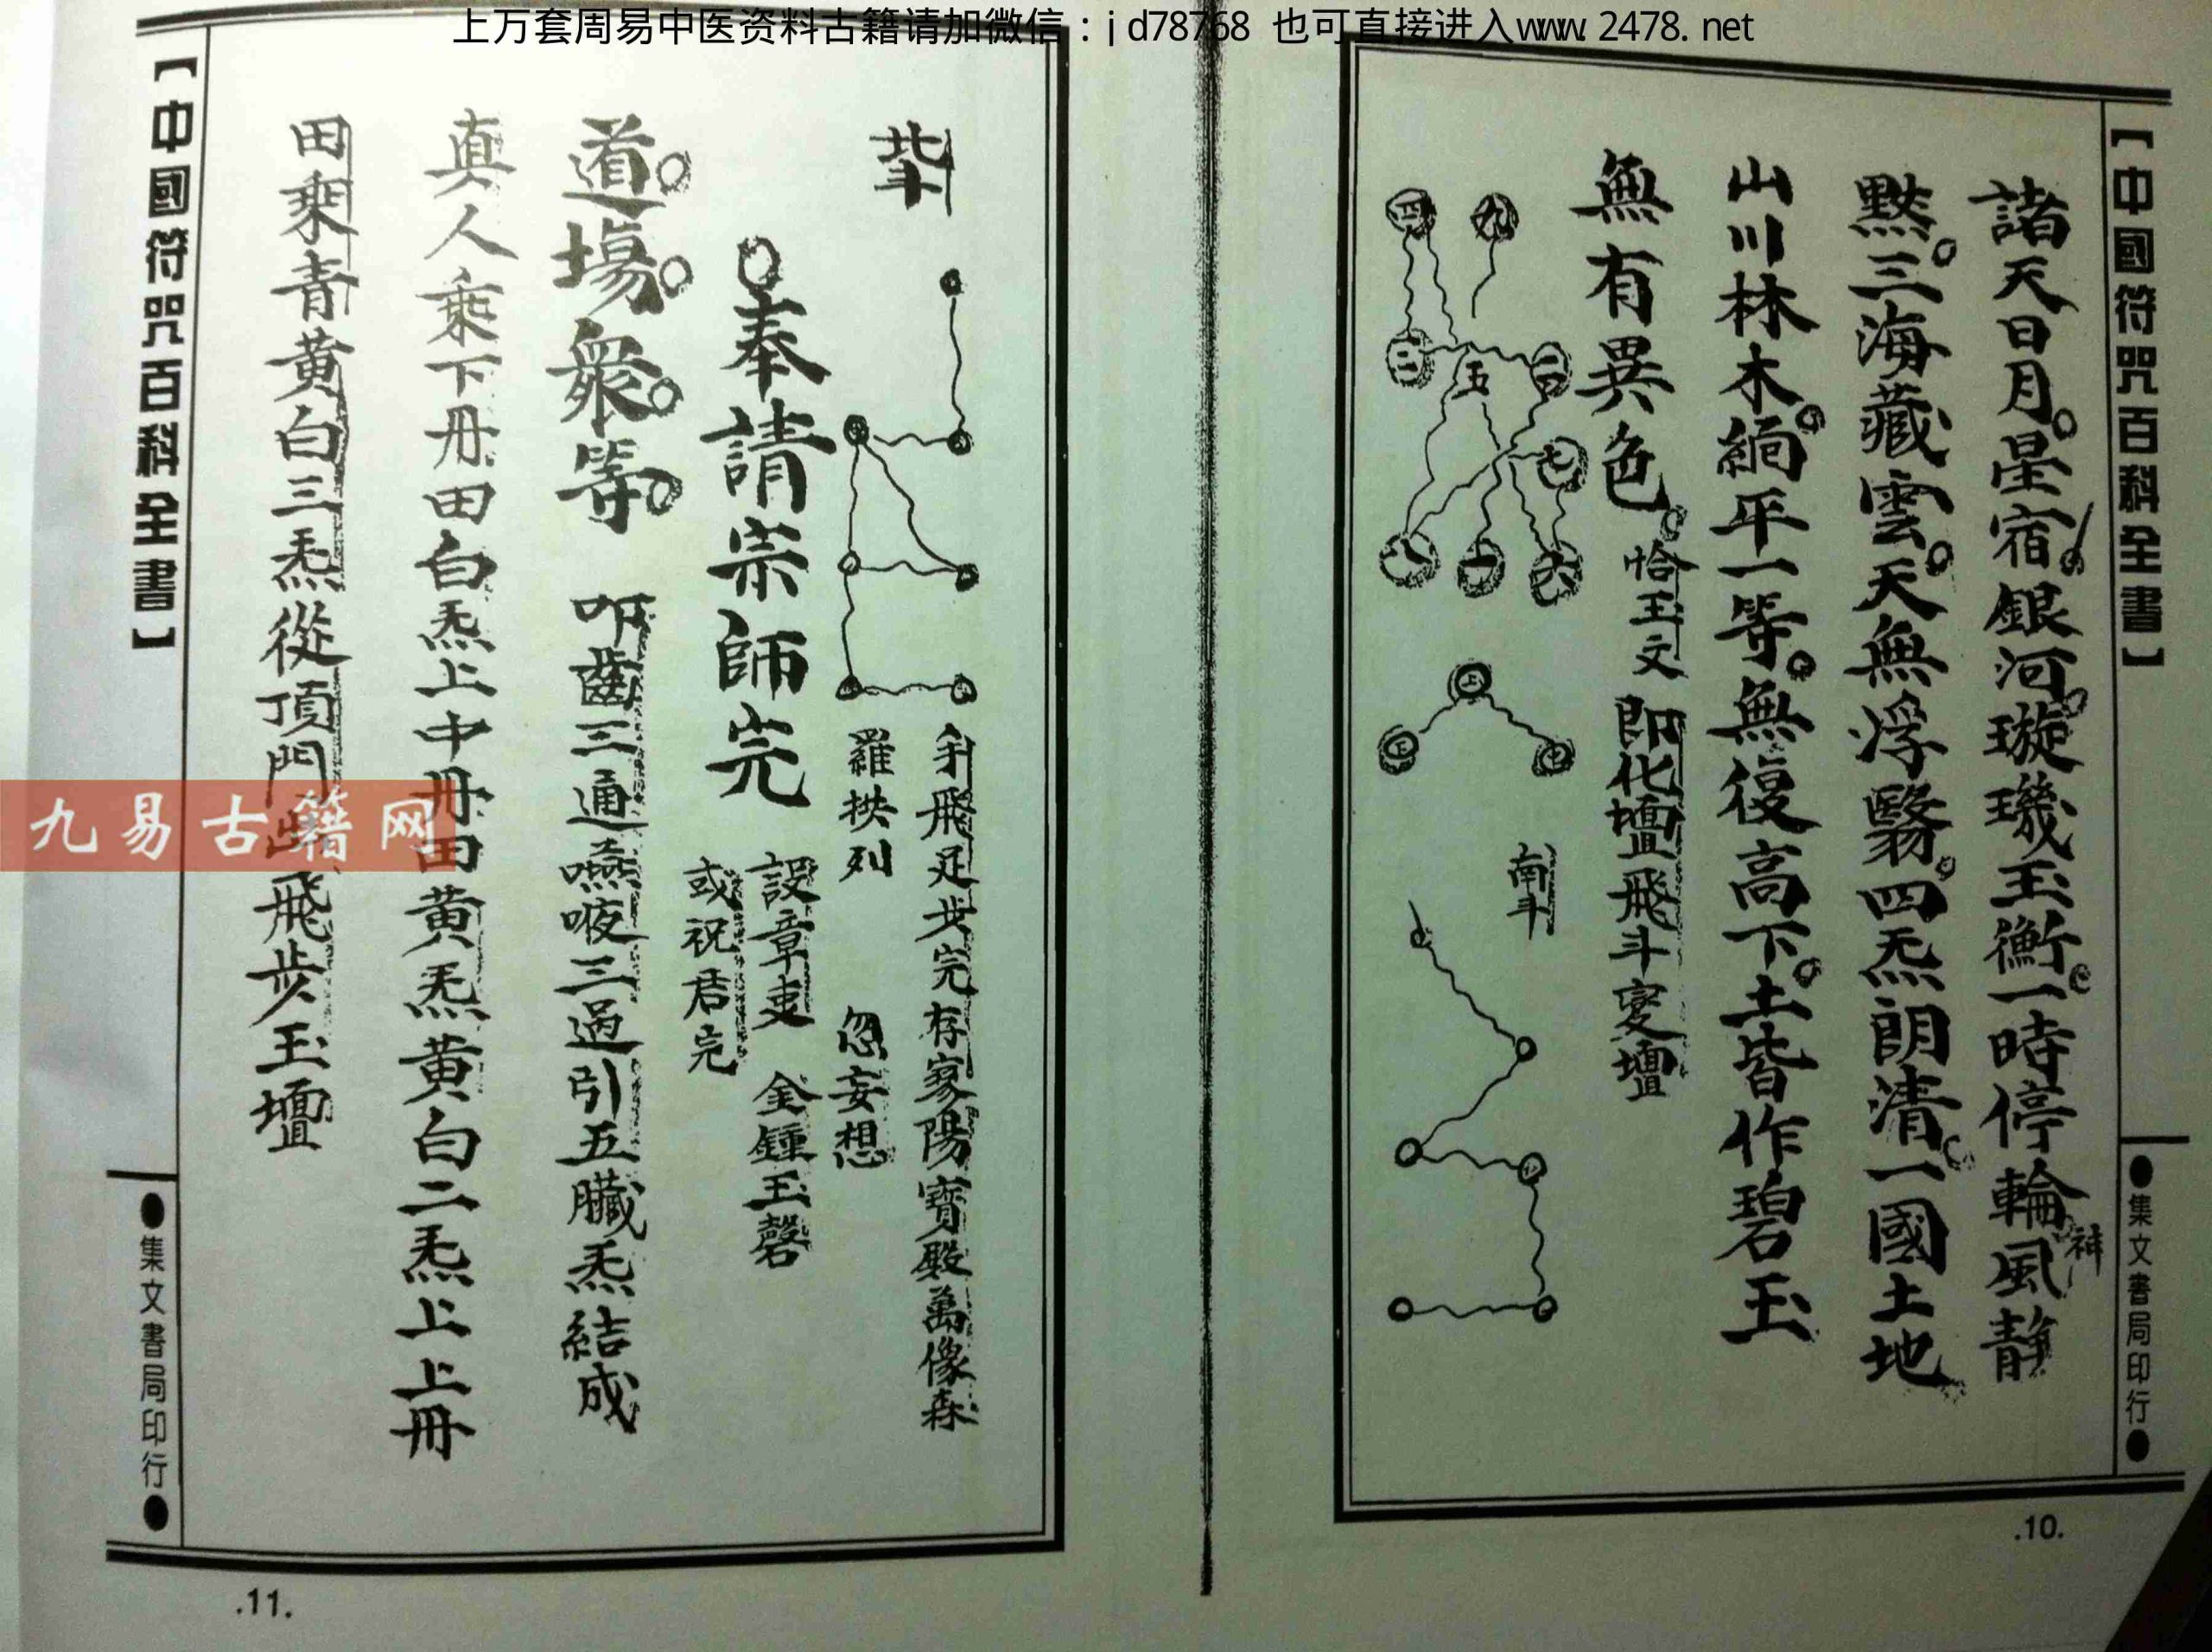 上万套周易中医资料古籍请加微信：jd78768 也可直接进入www.2478.net
【中國符咒百科全書】
●集文書局印行●
諸天日月。星宿。銀河。璇璣玉衡。一時停輪。風靜
神
黙。三海藏雲。天無浮翳。四炁朗清。一國土地
山川林木。緬平一等。無復高下。土皆作碧玉
無有異色。
恰玉文
即化壇飛斗变壇
九
四
三
二
五
七
八
一
六
上
中
南斗
.10.
北斗
手飛足步完存家陽寶殿萬像森
羅拱列
忽妄想
○奉請宗師完
設章吏
金鍾玉磬
或祝君完
道。場。衆。等。
叩齒三通嚥唆三過引五臟炁結成
真人乘下丹田白炁上中丹田黄炁黄白二炁上上丹
田乘青黄白三炁從頂門出飛步玉壇
【中國符咒百科全書】
●集文書局印行●
.11.
九易古籍网